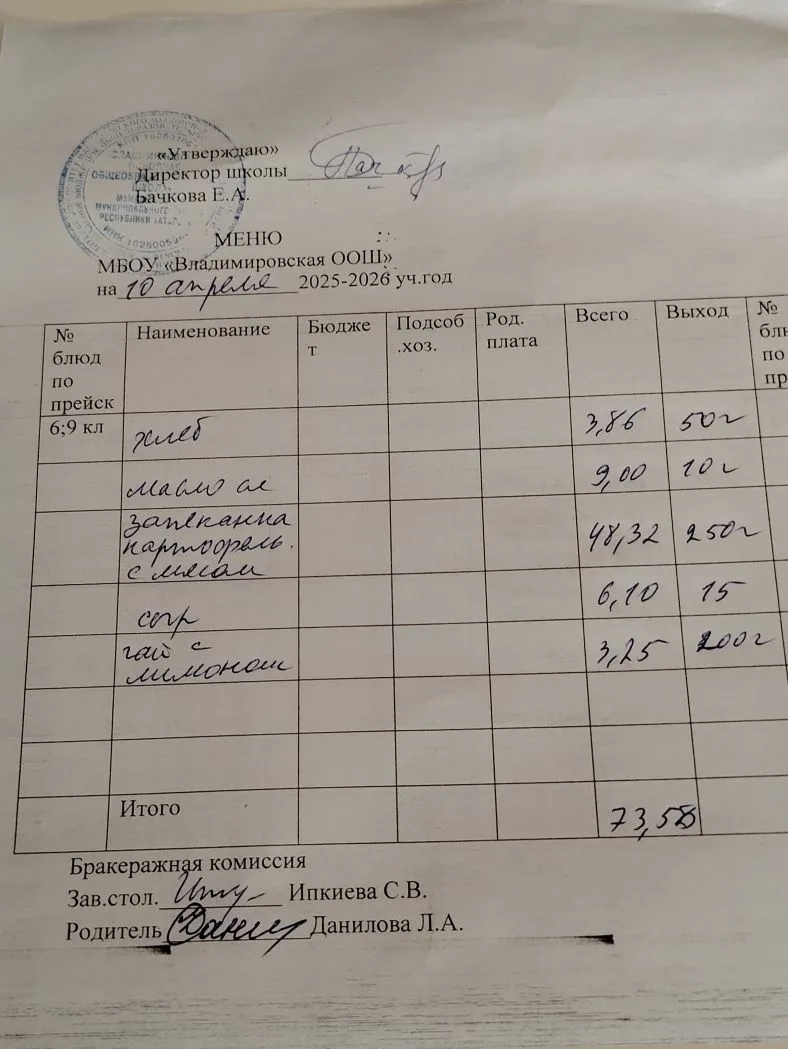 «Утверждаю»
Директор школы
Бачкова Е.А.
МЕНЮ
МБОУ «Владимировская ООШ»
на 10 апреля 2025-2026 уч.год
№ блюд по прейск | Наименование | Бюджет | Подсоб.хоз. | Род. плата | Всего | Выход | №
6;9 кл | хлеб | 3,86 | 50г
масло сл | 9,00 | 10г
запеканка картофель. с мясом | 48,32 | 250г
сыр | 6,10 | 15
чай с лимоном | 3,25 | 200г
Итого
Бракеражная комиссия
Зав.стол. Ипкиева С.В.
Родитель Данилова Л.А.